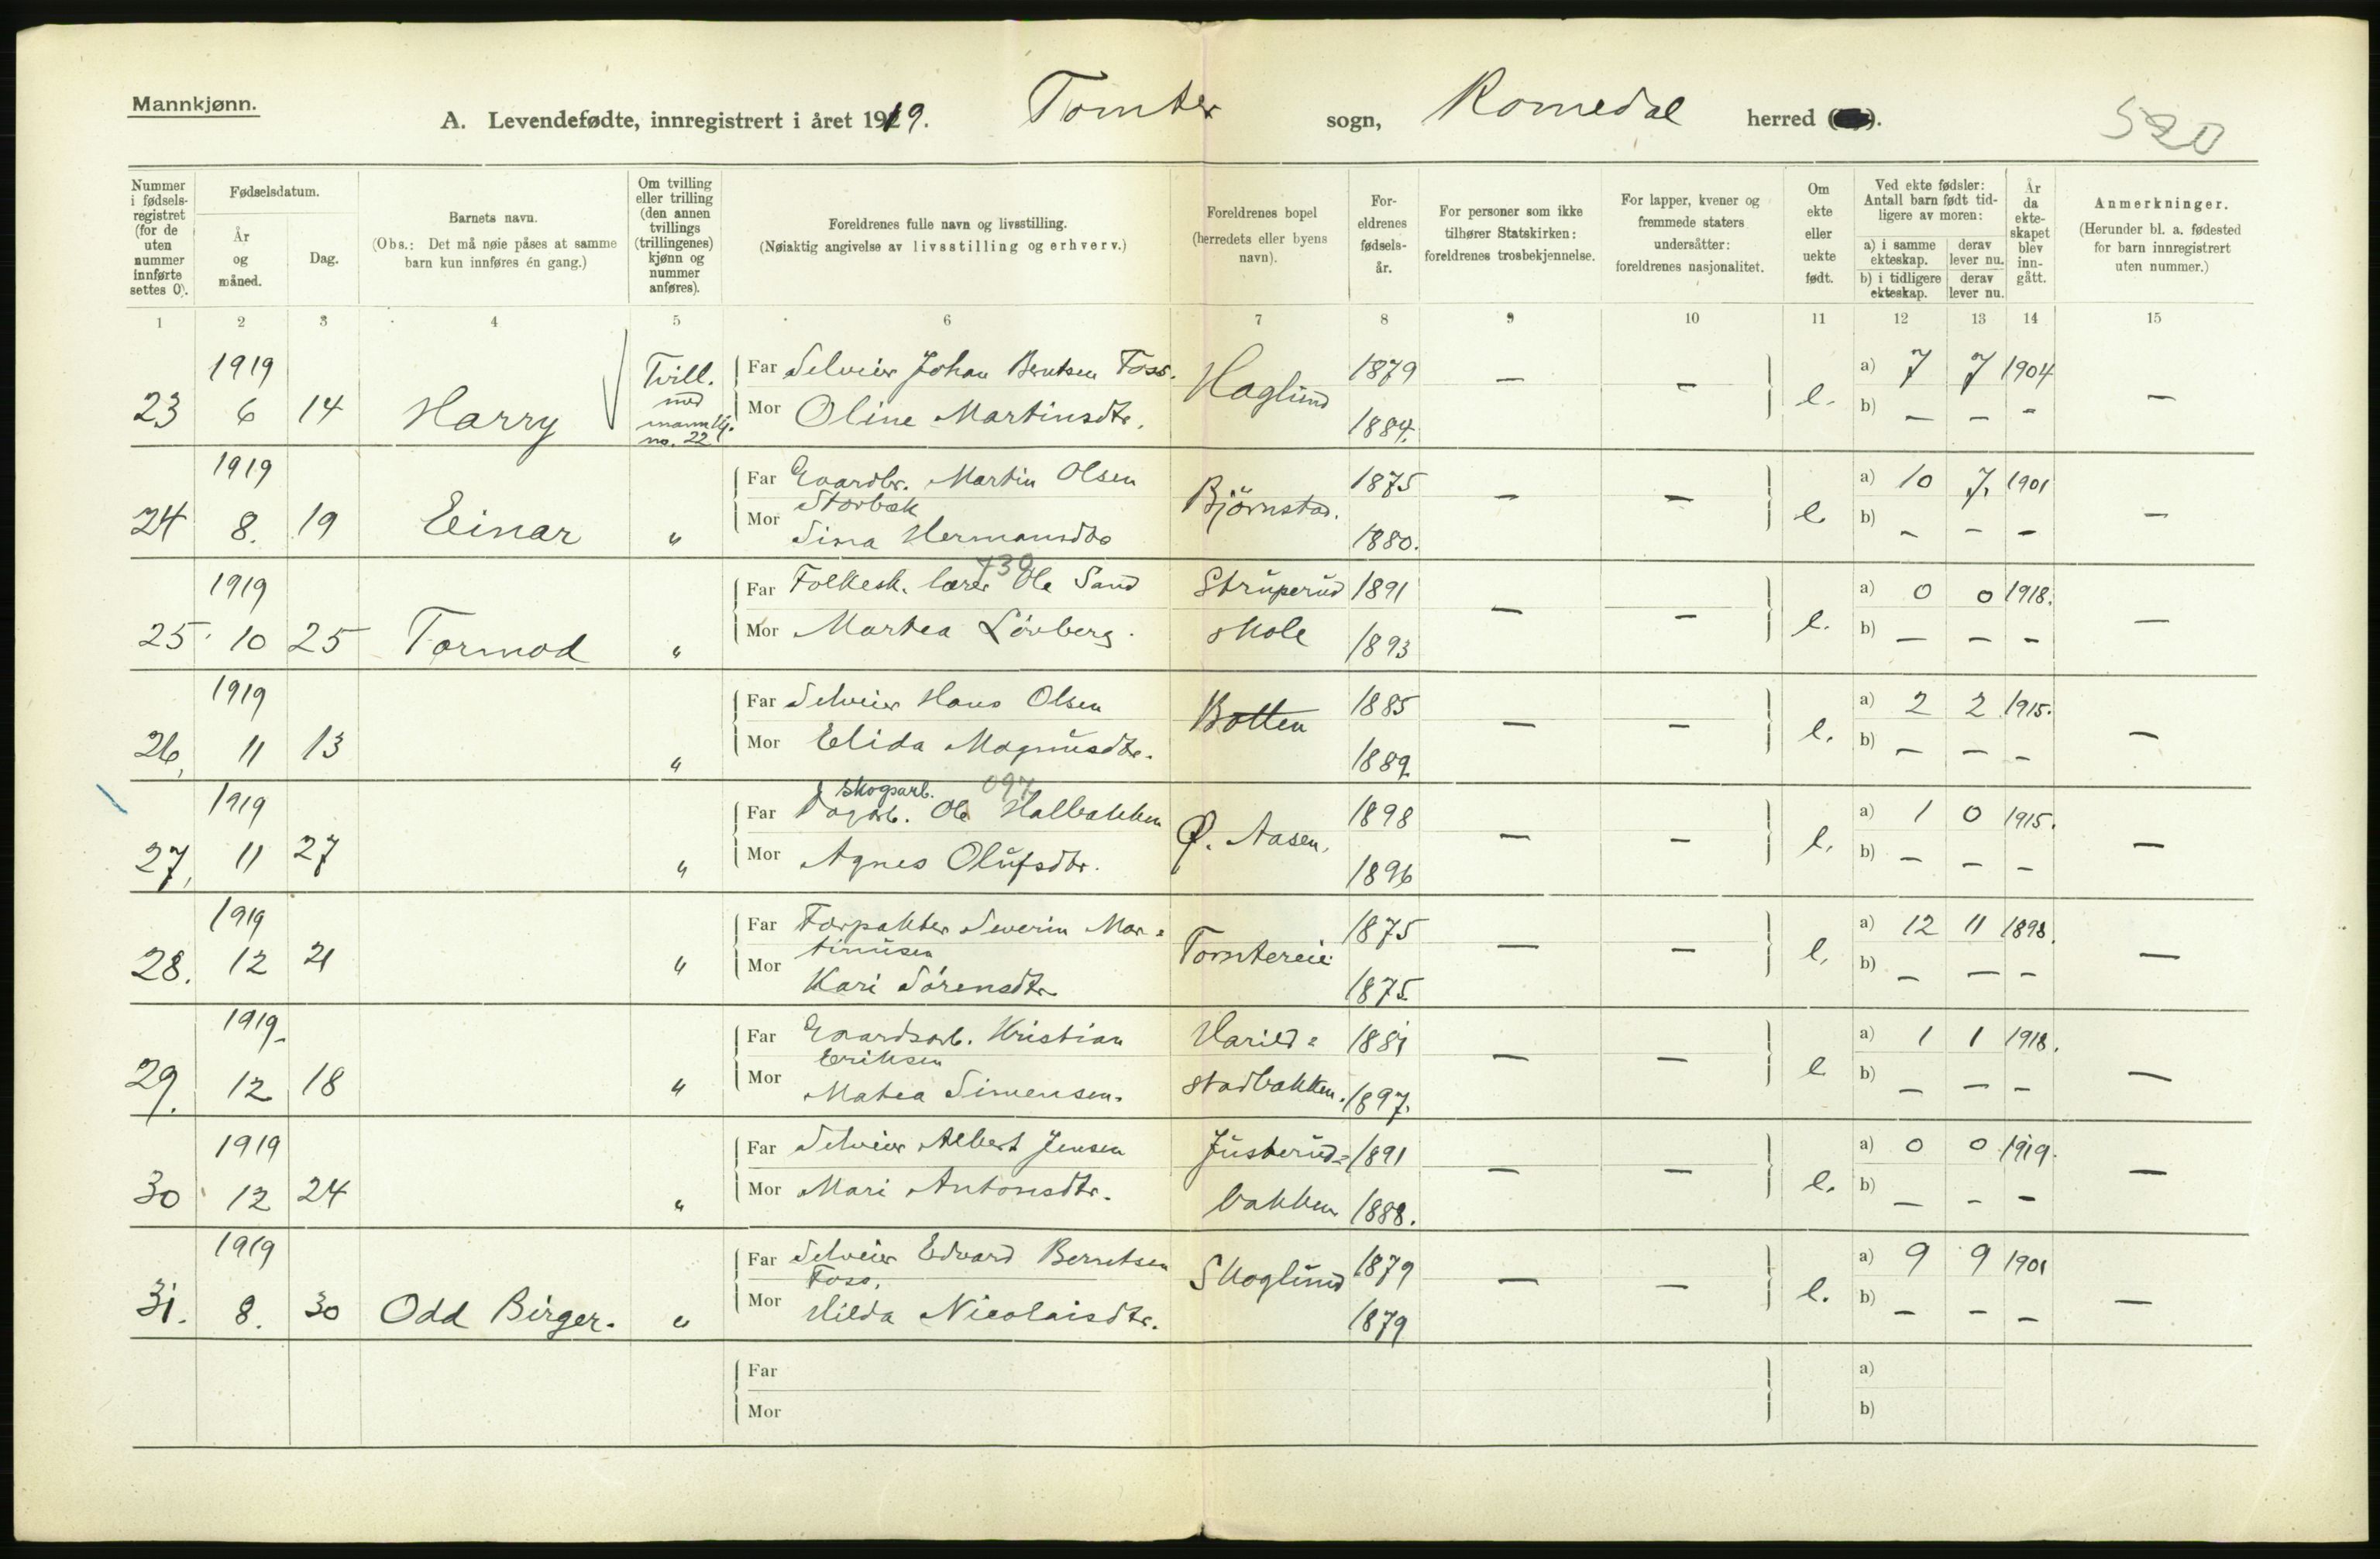 Mannkjønn.
A. Levendefødte, innregistrert i året 1919. Tomter sogn, Romedal herred ( ).
520
Nummer i fødselsregistret (for de uten nummer innførte settes 0).
Fødselsdatum.
År og måned.
Dag.
Barnets navn.
(Obs.: Det må nøie påses at samme barn kun innføres én gang.)
Om tvilling eller trilling (den annen tvillings (trillingenes) kjønn og nummer anføres).
Foreldrenes fulle navn og livsstilling.
(Nøiaktig angivelse av livsstilling og erhverv.)
Foreldrenes bopel (herredets eller byens navn).
Foreldrenes fødselsår.
For personer som ikke tilhører Statskirken: foreldrenes trosbekjennelse.
For lapper, kvener og fremmede staters undersåtter: foreldrenes nasjonalitet.
Om ekte eller uekte født.
Ved ekte fødsler: Antall barn født tidligere av moren:
a) i samme ekteskap. derav lever nu.
b) i tidligere ekteskap. derav lever nu.
År da ekteskapet blev inngått.
Anmerkninger.
(Herunder bl. a. fødested for barn innregistrert uten nummer.)
1 2 3 4 5 6 7 8 9 10 11 12 13 14 15
1919 Tvill. Far Selveier Johan Berntsen Foss. Haglund 1879 — — e. a) 7 7 1904 —
23 6 14 Harry med mannkj. no. 22 Mor Oline Martinsdtr. 1884. b) — — —
1919 Far Gaardbr. Martin Olsen Björnstad. 1875 — — e a) 10 7. 1901 —
Storbæk
24 8. 19 Einar " Mor Sina Hermansdtr 1880. b) — — —
430
1919 Far Folkesk. lærer Ole Sand Struperud 1891 — — e. a) 0 0 1918. —
25 10 25 Tormod " Mor Marthea Lövberg. skole 1893 b) — — —
1919 Far Selveier Hans Olsen Botten 1885 — — e. a) 2 2 1915. —
26, 11 13 " Mor Elida Magnusdtr. 1889 b) — — —
skogsarb. 097
1919 Far Dagarb. Ole Halbakken Ø. Aasen. 1898 — — e. a) 1 0 1915. —
27, 11 27 " Mor Agnes Olufsdtr. 1896 b) — — —
1919 Far Forpakter Severin Mar= Tomtereie 1875 — — e. a) 12 11 1898. —
tinusen
28. 12 21 " Mor Kari Sörensdtr 1875 b) — — —
1919 Far Gaardsarb. Kristian Harild= 1889 — — e a) 1 1 1918. —
Eriksen
29. 12 18 " Mor Mathea Simensen. stadbakken. 1897. b) — — —
1919 Far Selveier Albert Jensen Justerud= 1891 — — e. a) 0 0 1919. —
30 12 24 " Mor Mari Antonsdtr. bakken 1888. b) — — —
1919 Far Selveier Edvard Berntsen Skoglund 1879 — — e. a) 9 9 1901 —
Foss.
31. 8. 30 Odd Birger. " Mor Hilda Nicolaisdtr. 1879 b) — — —
Far a)
Mor b)